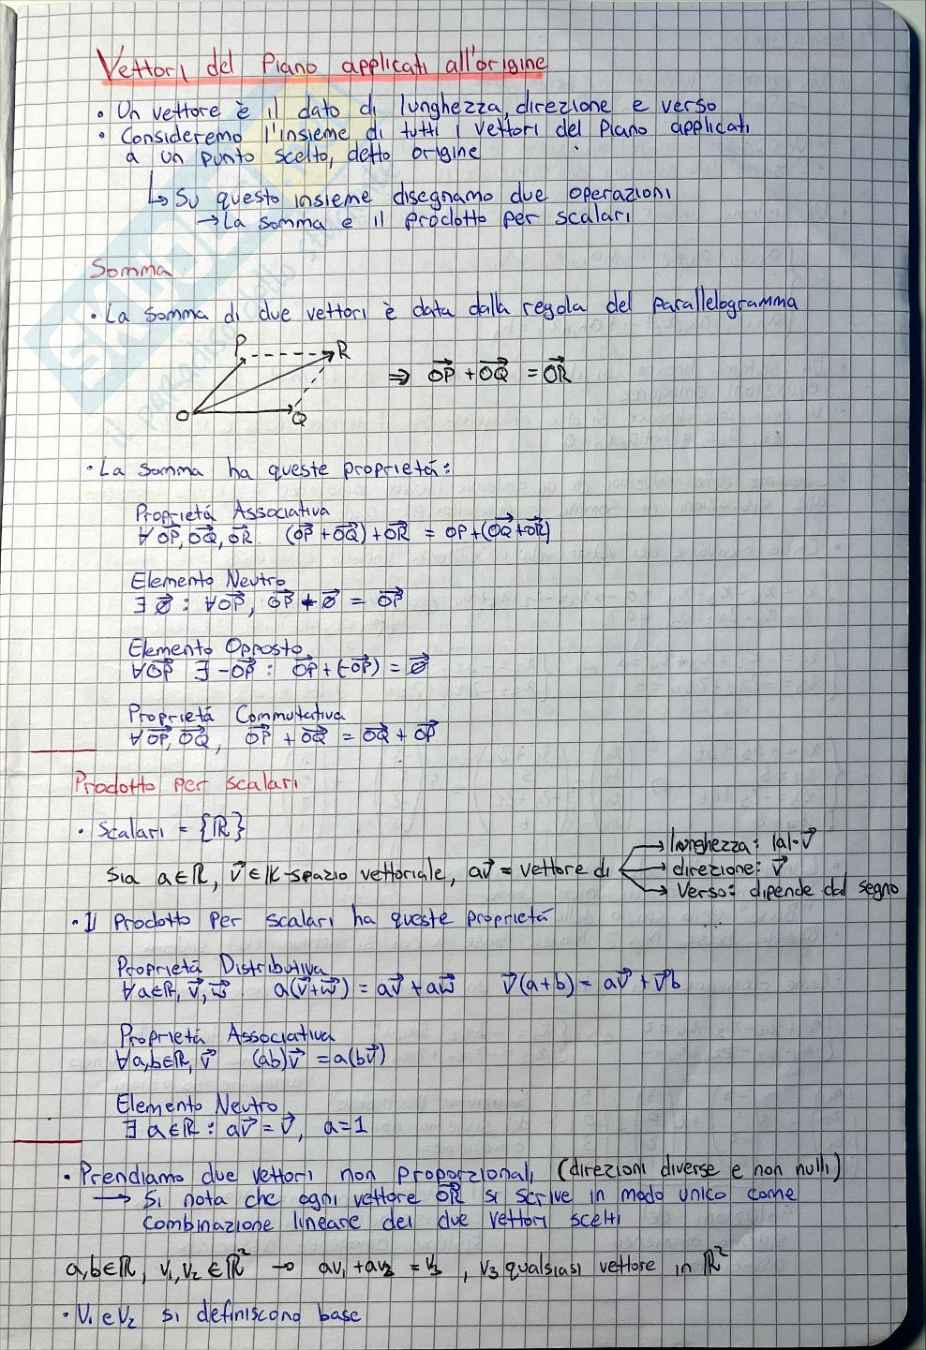 Vettori del Piano applicati all'origine
• Un vettore è il dato di lunghezza, direzione e verso
• Consideremo l'insieme di tutti i vettori del Piano applicati
a un punto scelto, detto origine
↳ Su questo insieme disegnamo due operazioni
→ La somma e il prodotto per scalari
Somma
• La somma di due vettori è data dalla regola del Parallelogramma
P
R
O
Q
⇒ O͢P + O͢Q = O͢R
• La somma ha queste proprietà:
Proprietá Associativa
∀ O͢P, O͢Q, O͢R (O͢P + O͢Q) + O͢R = OP + (O͢Q + O͢R)
Elemento Neutro
∃ O͢ : ∀ O͢P, O͢P + O͢ = O͢P
Elemento Opposto
∀ O͢P ∃ -O͢P : O͢P + (-O͢P) = O͢
Proprietá Commutativa
∀ O͢P, O͢Q, O͢P + O͢Q = O͢Q + O͢P
Prodotto per scalari
• Scalari = {ℝ}
Sia a∈ℝ, v⃗∈𝕂-spazio vettoriale, av⃗ = vettore di
→ lunghezza: |a|·v⃗
→ direzione: v⃗
→ Verso: dipende dal segno
• Il Prodotto Per scalari ha queste proprietá
Proprietá Distributiva
∀a∈ℝ, v⃗, w⃗ a(v⃗+w⃗) = av⃗ + aw⃗ v⃗(a+b) = av⃗ + v⃗b
Proprietá Associativa
∀a,b∈ℝ, v⃗ (ab)v⃗ = a(bv⃗)
Elemento Neutro
∃ a∈ℝ : av⃗ = v⃗, a=1
• Prendiamo due vettori non proporzionali (direzioni diverse e non nulli)
→ Si nota che ogni vettore O͢R si scrive in modo unico come
combinazione lineare dei due vettori scelti
a,b∈ℝ, v₁,v₂ ∈ ℝ² → av₁ + av₂ = v₃, v₃ qualsiasi vettore in ℝ²
• V₁ e V₂ si definiscono base